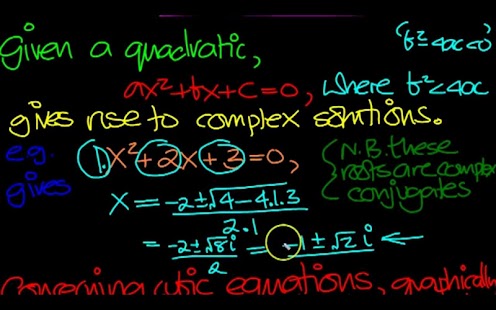 Given a quadratic,
(b²-4ac<0)
ax²+bx+c=0, where b²<4ac
gives rise to complex solutions.
e.g. 1.x²+2x+3=0,
gives
{N.B. these
roots are complex
conjugates
x = -2±√4-4.1.3
2.1
= -2±√8i = -1±√2i ←
2
equations, graphically